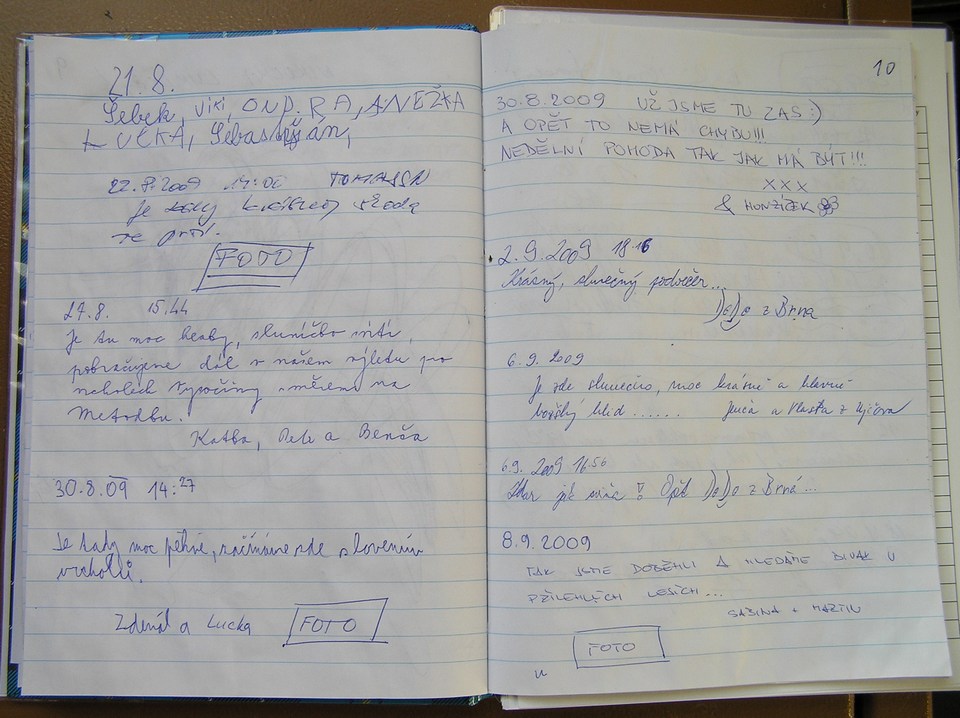 21.8.
Šebek, Viki, ONDRA, ANEŽKA
LUCKA, Sebastián,
22.8.2009 14:00
Je tady
se prší.
FOTO
27.8. 15.44
Je tu moc hezky, sluníčko svítí,
pokračujeme dál v našem výletu po
vrcholech Vysočiny směrem na
Katka, Pete a Benča
30.8.09 14:27
Je tady moc pěkně, začínáme zde slovením
vrcholů.
Zdenál a Lucka FOTO
10
30.8.2009 UŽ JSME TU ZAS :)
A OPĚT TO NEMÁ CHYBU!!!
NEDĚLNÍ POHODA TAK JAK MÁ BÝT!!!
XXX
& HONZÍČEK
2.9.2009 18.16
Krásný, slunečný podvečer...
DeDe z Brna
6.9.2009
Je zde slunečno, moc krásně a hlavně
božský klid...... a Vlasta z
6.9.2009 16.56
Zdar jak sviňa! Opět DeDe z Brna...
8.9.2009
TAK JSME DOBĚHLI A HLEDÁME DIVÁK V
PŘILEHLÝCH LESÍCH...
SABINA + MARTIN
FOTO